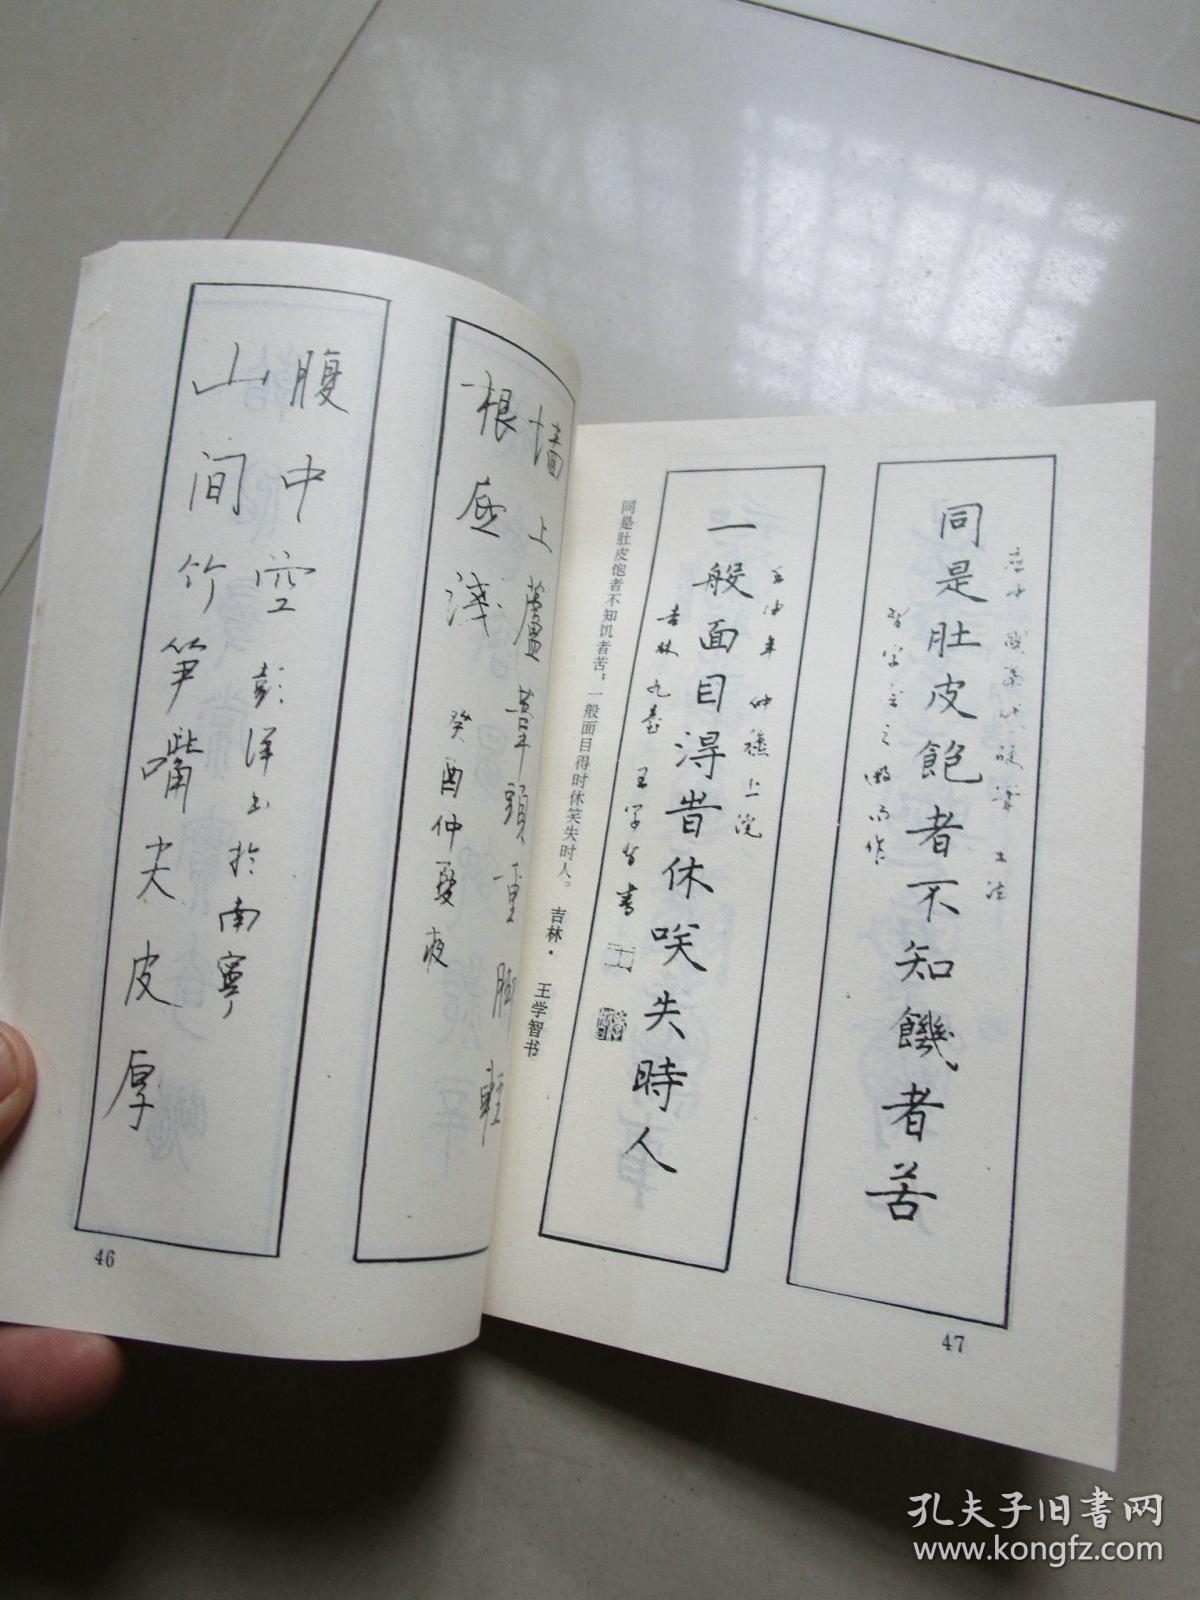 墙上蘆葦頭重脚輕
根底淺
癸酉仲夏夜
腹中空
山間竹笋嘴尖皮厚
彭洋书於南寧
46
同是肚皮飽者不知饑者苦
一般面目得時休咲失時人
壬申年仲穐上浣
吉林九臺王学智書
同是肚皮饱者不知饥者苦；一般面目得时休笑失时人。 吉林·王学智书
47
孔夫子旧书网
www.kongfz.com